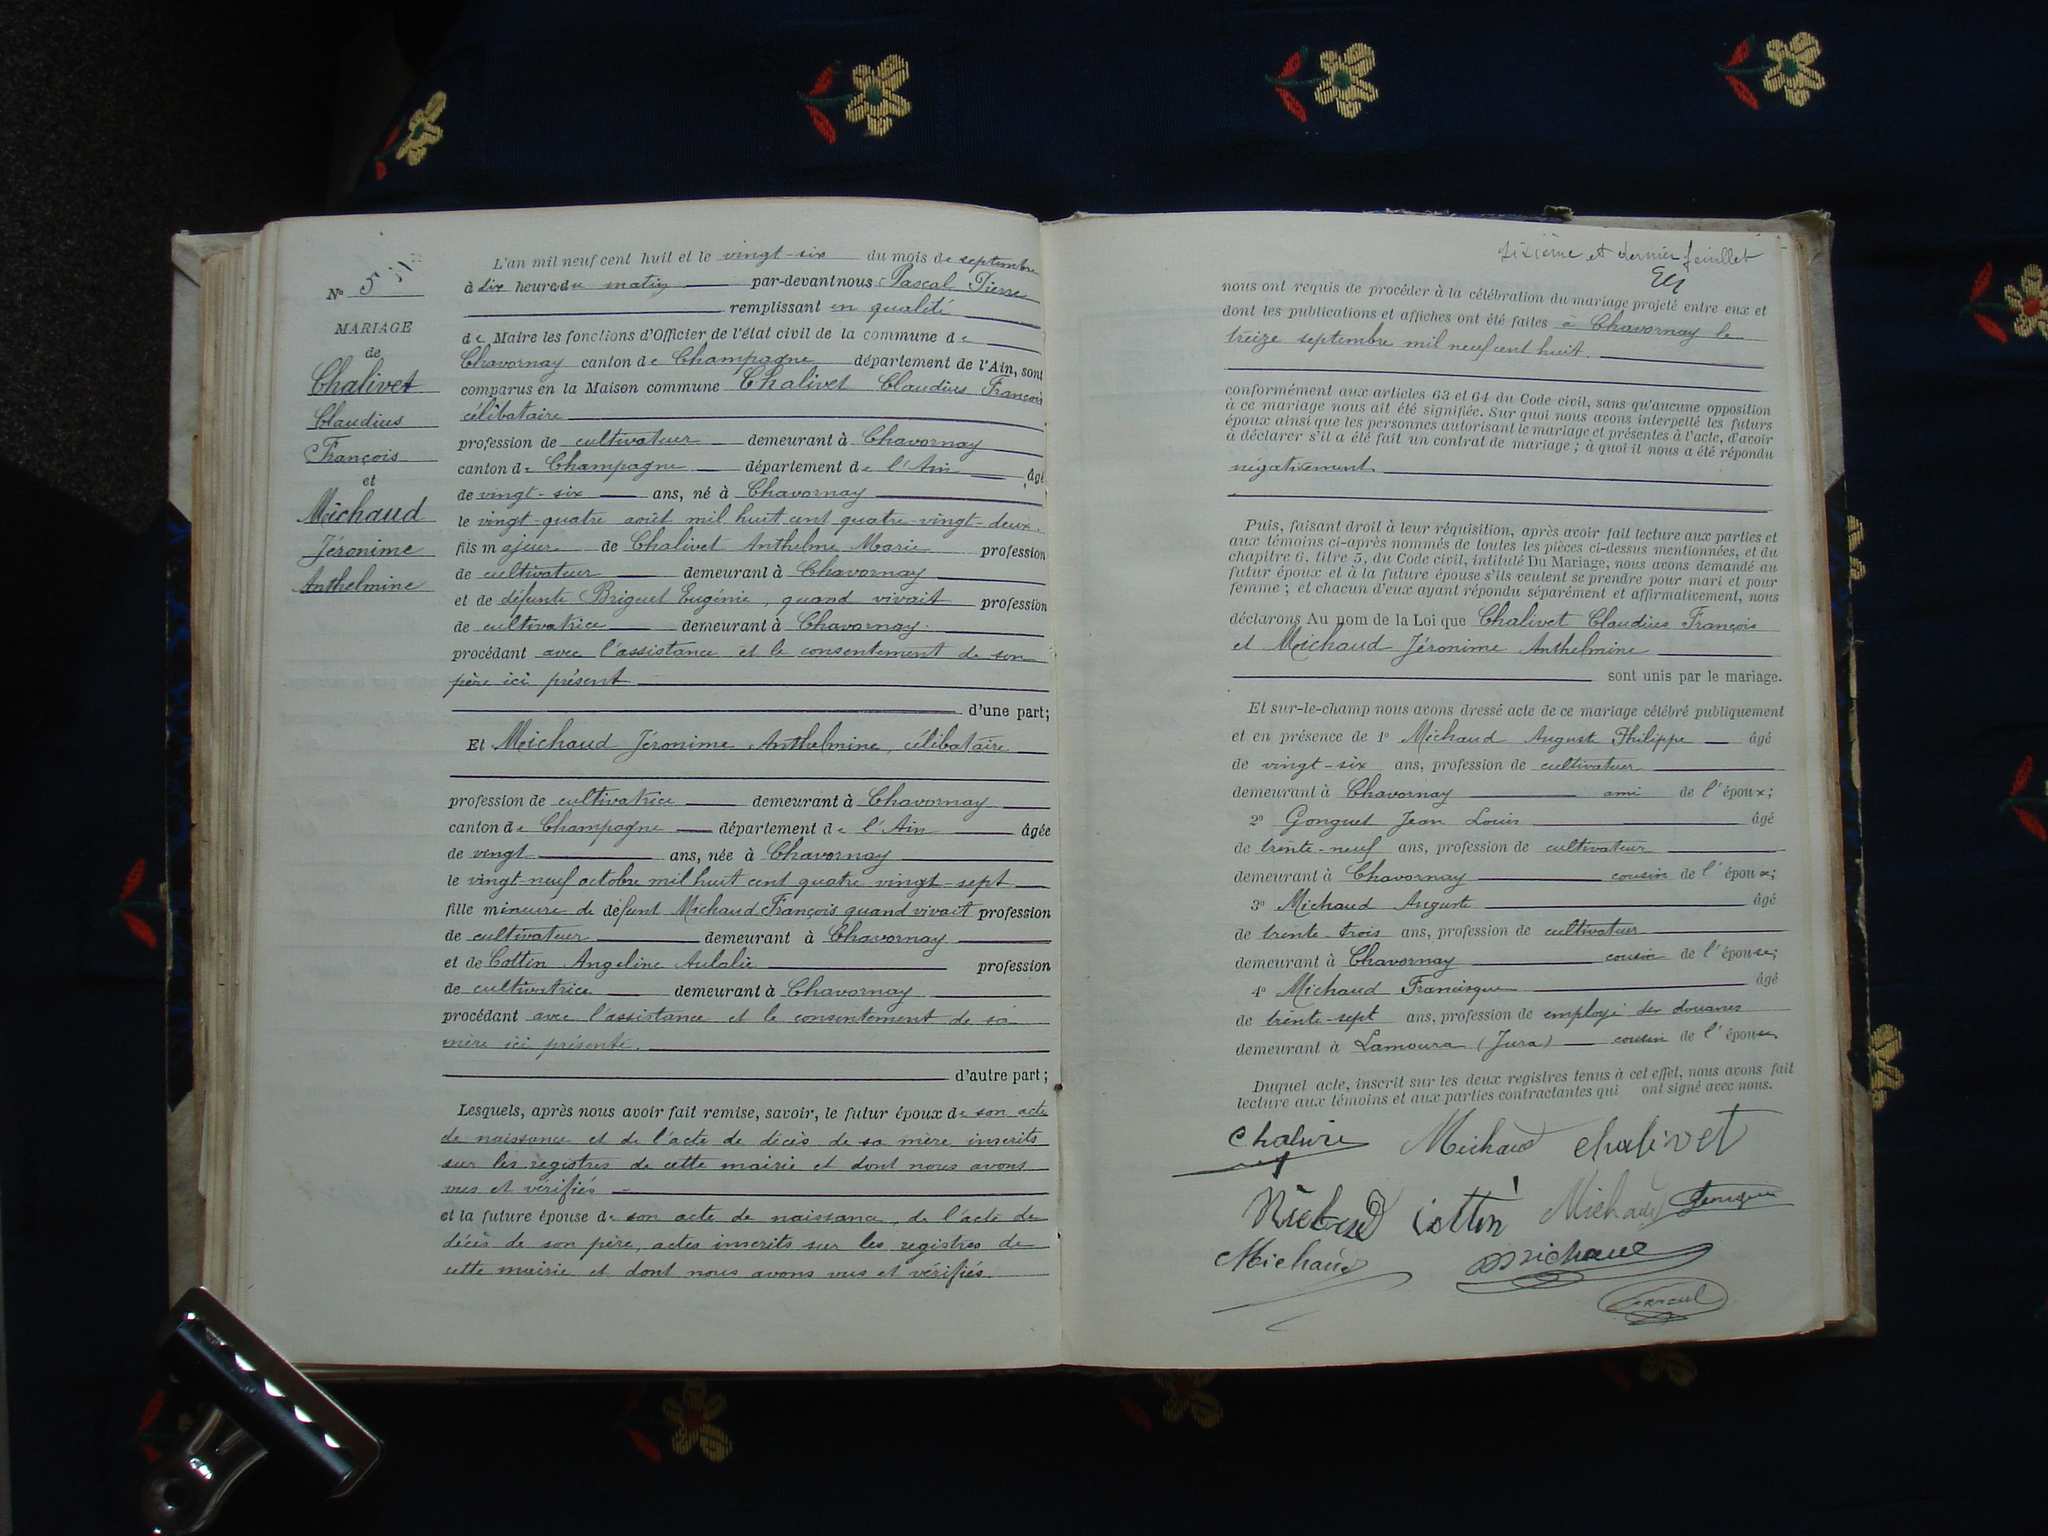 N° 5
MARIAGE
de
Chalivet
Claudius
François
et
Michaud
Jéronime
Anthelmine
L'an mil neuf cent huit et le vingt-six du mois de septembre
à dix heures du matin par-devant nous Pascal Pierre
remplissant en qualité
de Maire les fonctions d'Officier de l'état civil de la commune de
Chavornay canton de Champagne département de l'Ain, sont
comparus en la Maison commune Chalivet Claudius François
célibataire
profession de cultivateur demeurant à Chavornay
canton de Champagne département de l'Ain âgé
de vingt-six ans, né à Chavornay
le vingt-quatre août mil huit cent quatre-vingt-deux.
fils majeur de Chalivet Anthelme Marie profession
de cultivateur demeurant à Chavornay
et de défunte Briguet Eugénie, quand vivait profession
de cultivatrice demeurant à Chavornay.
procédant avec l'assistance et le consentement de son
père ici présent
d'une part;
Et Michaud Jéronime Anthelmine, célibataire
profession de cultivatrice demeurant à Chavornay
canton de Champagne département de l'Ain âgée
de vingt ans, née à Chavornay
le vingt-neuf octobre mil huit cent quatre vingt-sept
fille mineure de défunt Michaud François quand vivait profession
de cultivateur demeurant à Chavornay
et de Cottin Angeline Aulalie profession
de cultivatrice demeurant à Chavornay
procédant avec l'assistance et le consentement de sa
mère ici présente.
d'autre part;
Lesquels, après nous avoir fait remise, savoir, le futur époux de son acte
de naissance et de l'acte de décès de sa mère inscrits
sur les registres de cette mairie et dont nous avons
vus et vérifiés
et la future épouse de son acte de naissance, de l'acte de
décès de son père, actes inscrits sur les registres de
cette mairie et dont nous avons vus et vérifiés.
sixième et dernier feuillet
nous ont requis de procéder à la célébration du mariage projeté entre eux et
dont les publications et affiches ont été faites à Chavornay le
treize septembre mil neuf cent huit.
conformément aux articles 63 et 64 du Code civil, sans qu'aucune opposition
à ce mariage nous ait été signifiée. Sur quoi nous avons interpellé les futurs
époux ainsi que les personnes autorisant le mariage et présentes à l'acte, d'avoir
à déclarer s'il a été fait un contrat de mariage; à quoi il nous a été répondu
négativement
Puis, faisant droit à leur réquisition, après avoir fait lecture aux parties et
aux témoins ci-après nommés de toutes les pièces ci-dessus mentionnées, et du
chapitre 6, titre 5, du Code civil, intitulé Du Mariage, nous avons demandé au
futur époux et à la future épouse s'ils veulent se prendre pour mari et pour
femme; et chacun d'eux ayant répondu séparément et affirmativement, nous
déclarons Au nom de la Loi que Chalivet Claudius François
et Michaud Jéronime Anthelmine
sont unis par le mariage.
Et sur-le-champ nous avons dressé acte de ce mariage célébré publiquement
et en présence de 1° Michaud Auguste Philippe âgé
de vingt-six ans, profession de cultivateur
demeurant à Chavornay ami de l'époux;
2° Gonguet Jean Louis âgé
de trente-neuf ans, profession de cultivateur
demeurant à Chavornay cousin de l'époux;
3° Michaud Auguste âgé
de trente-trois ans, profession de cultivateur
demeurant à Chavornay cousin de l'épouse;
4° Michaud Francisque âgé
de trente-sept ans, profession de employé des douanes
demeurant à Lamoura (Jura) cousin de l'épouse
Duquel acte, inscrit sur les deux registres tenus à cet effet, nous avons fait
lecture aux témoins et aux parties contractantes qui ont signé avec nous.
Michaud chalivet
Michaud Cottin Michaud
Michaud Michaud